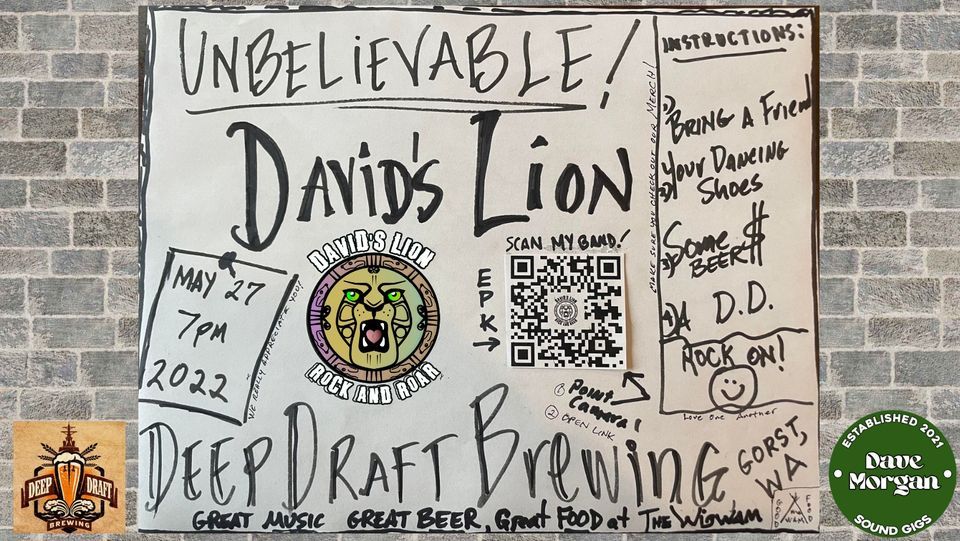 UNBELIEVABLE!
DAVID'S LION
INSTRUCTIONS:
1) BRING A FRIEND
2) YOUR DANCING
SHOES
3) SOME $
BEER $
4) A D.D.
ROCK ON!
Love One Another
MAKE SURE YOU CHECK OUT OUR MERCH!
MAY 27
7PM
2022
WE REALLY APPRECIATE YOU!
DAVID'S LION
ROCK AND ROAR
SCAN MY BAND!
EPK
① POINT
CAMERA!
② OPEN LINK
DEEP DRAFT BREWING
GORST,
WA
GREAT MUSIC GREAT BEER, Great FOOD at THE WigWAM
GOOD
WAM
FOOD
DEEP DRAFT
BREWING
ESTABLISHED 2021
Dave
Morgan
SOUND GIGS